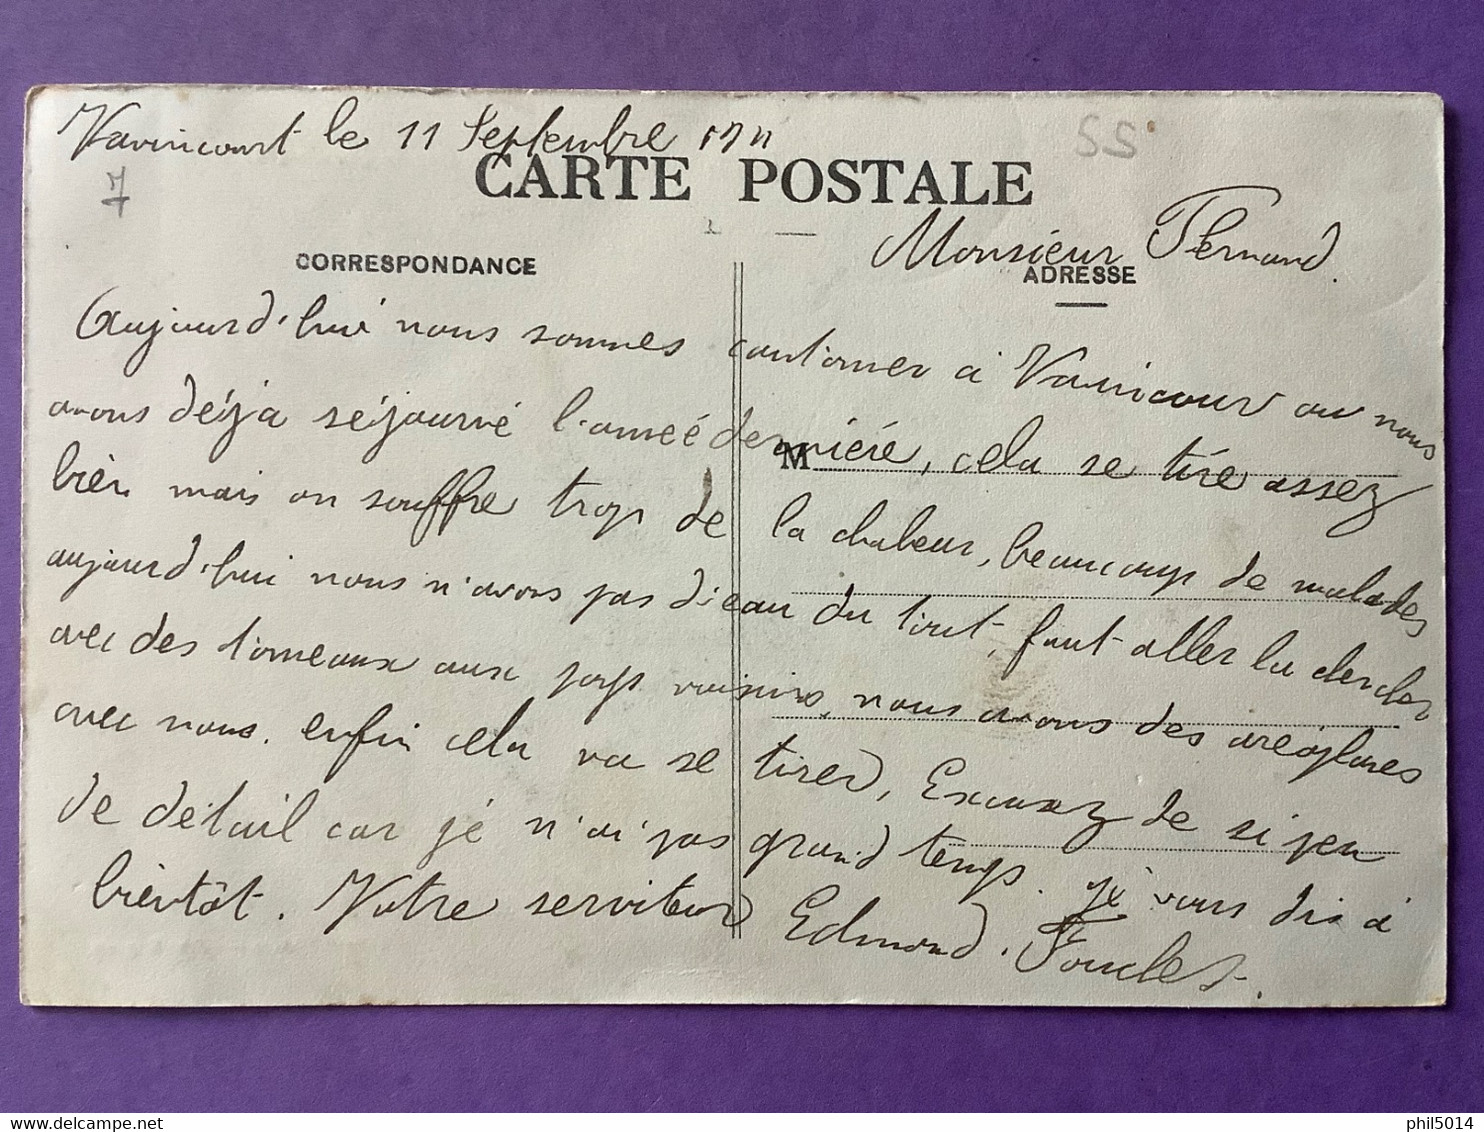 Vavincourt le 11 Septembre 1911
7
55
CARTE POSTALE
CORRESPONDANCE
ADRESSE
Monsieur Fernand.
M
Aujourd'hui nous sommes cantonner à Vavincour ou nous
avons déja séjourné l'année derniére, cela se tire assez
bien mais on souffre trop de la chaleur, beaucoup de malades
aujourd'hui nous n'avons pas d'eau du tout, faut aller la chercher
avec des tonneaux aux pays voisins, nous avons des aréoplanes
avec nous. enfin cela va se tirer, Excusez de si peu
de détail car je n'ai pas grand temps. je vous dis a
bientôt. Votre serviteur Edmond.
delcampe.net
phil5014